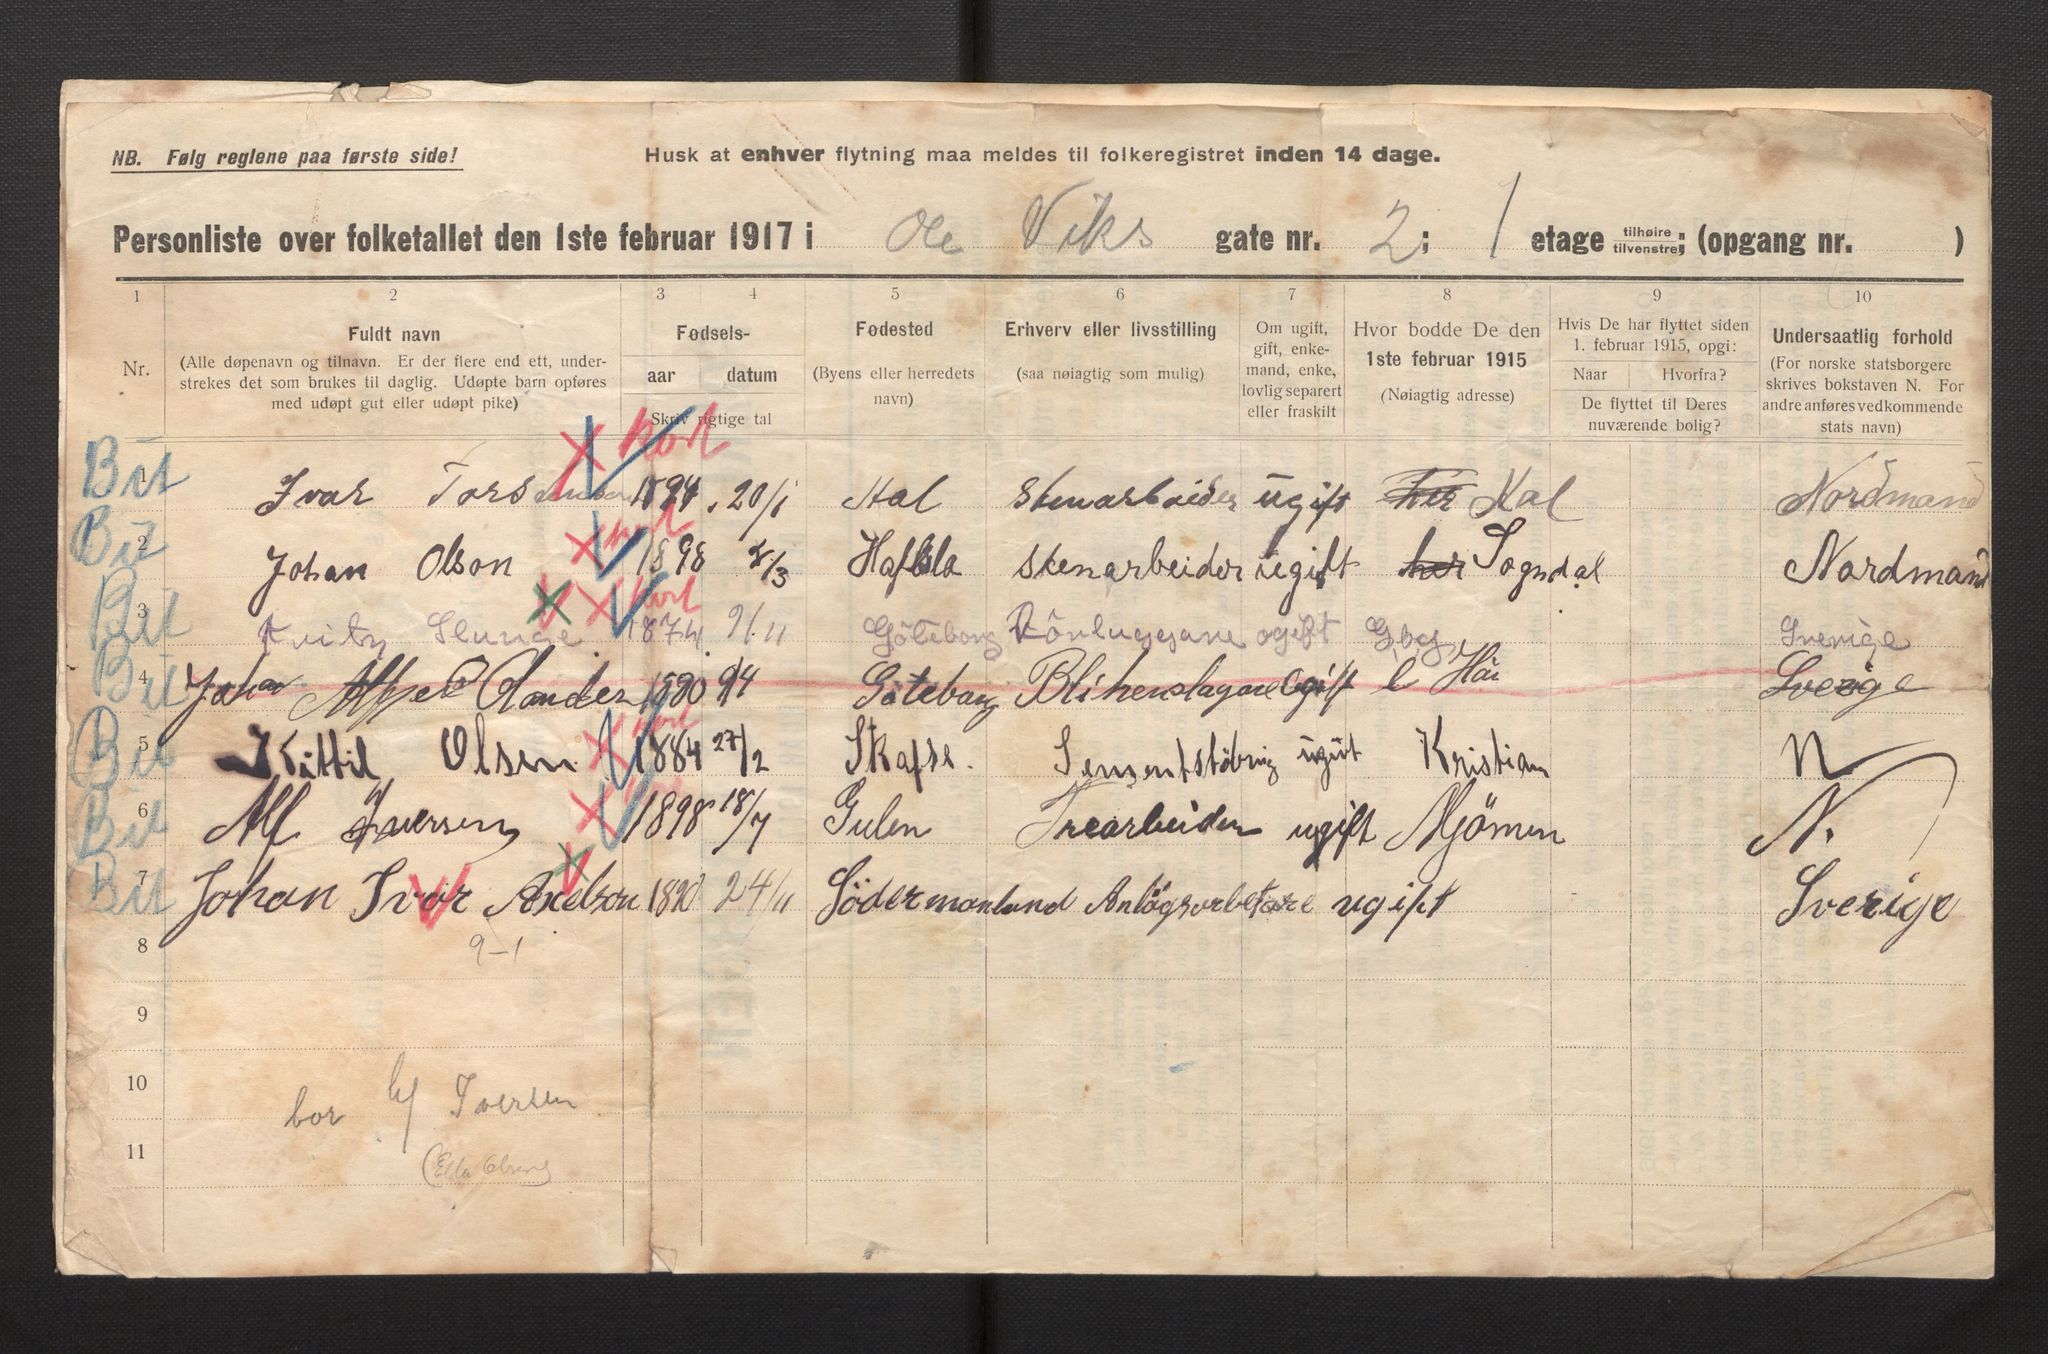 NB. Følg reglene paa første side!
Husk at enhver flytning maa meldes til folkeregistret inden 14 dage.
Personliste over folketallet den 1ste februar 1917 i Ole Viks gate nr. 2; 1 etage tilhøire tilvenstre; (opgang nr. )
1 2 3 4 5 6 7 8 9 10
Nr.
Fuldt navn
(Alle døpenavn og tilnavn. Er der flere end ett, under-
strekes det som brukes til daglig. Udøpte barn opføres
med udøpt gut eller udøpt pike)
Fødsels-
aar datum
Skriv rigtige tal
Fødested
(Byens eller herredets
navn)
Erhverv eller livsstilling
(saa nøiagtig som mulig)
Om ugift,
gift, enke-
mand, enke,
lovlig separert
eller fraskilt
Hvor bodde De den
1ste februar 1915
(Nøiagtig adresse)
Hvis De har flyttet siden
1. februar 1915, opgi:
Naar Hvorfra?
De flyttet til Deres
nuværende bolig?
Undersaatlig forhold
(For norske statsborgere
skrives bokstaven N. For
andre anføres vedkommende
stats navn)
kort
Bit 1 Ivar 1894 20/1 Stenarbeider ugift Nordmand
Bit 2 Johan Olson 1898 Hafslo Stenarbeider ugift her Sogndal Nordmand
kort
Bit 3 1874 9/11 Göteborg ogift Gbg Sverige
Bit 4 Johan Göteborg ogift Sverige
Bit 5 Kittil Olsen 1884 27/2 ugivt Kristian N
Bit 6 Alf Iversen 1898 18/7 Gulen Trearbeider ugift N.
Bit 7 Johan Ivar Axelson 1890 24/11 Södermanland Anlägsarbetare ugift Sverige
8 9-1
9
10 bor Iversen
11